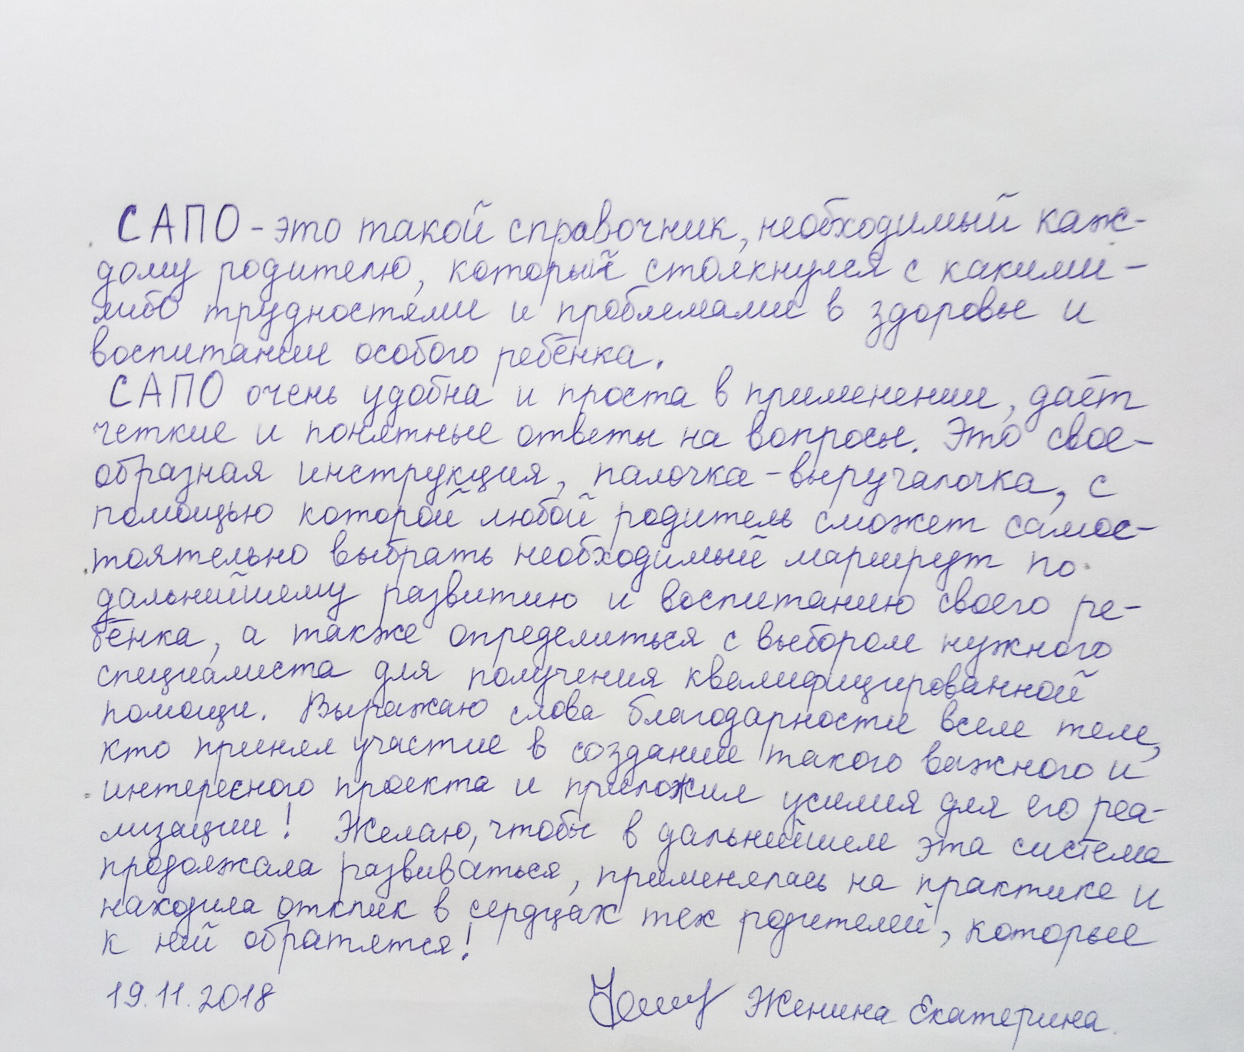 САПО - это такой справочник, необходимый каж-
дому родителю, который столкнулся с какими-
либо трудностями и проблемами в здоровье и
воспитании особого ребёнка.
САПО очень удобна и проста в применении, даёт
четкие и понятные ответы на вопросы. Это свое-
образная инструкция, палочка-выручалочка, с
помощью которой любой родитель сможет самос-
тоятельно выбрать необходимый маршрут по
дальнейшему развитию и воспитанию своего ре-
бёнка, а также определиться с выбором нужного
специалиста для получения квалифицированной
помощи. Выражаю слова благодарности всем тем,
кто принял участие в создании такого важного и
интересного проекта и приложил усилия для его реа-
лизации! Желаю, чтобы в дальнейшем эта система
продолжала развиваться, применялась на практике и
находила отклик в сердцах тех родителей, которые
к ней обратятся!
19.11.2018 Женина Екатерина.